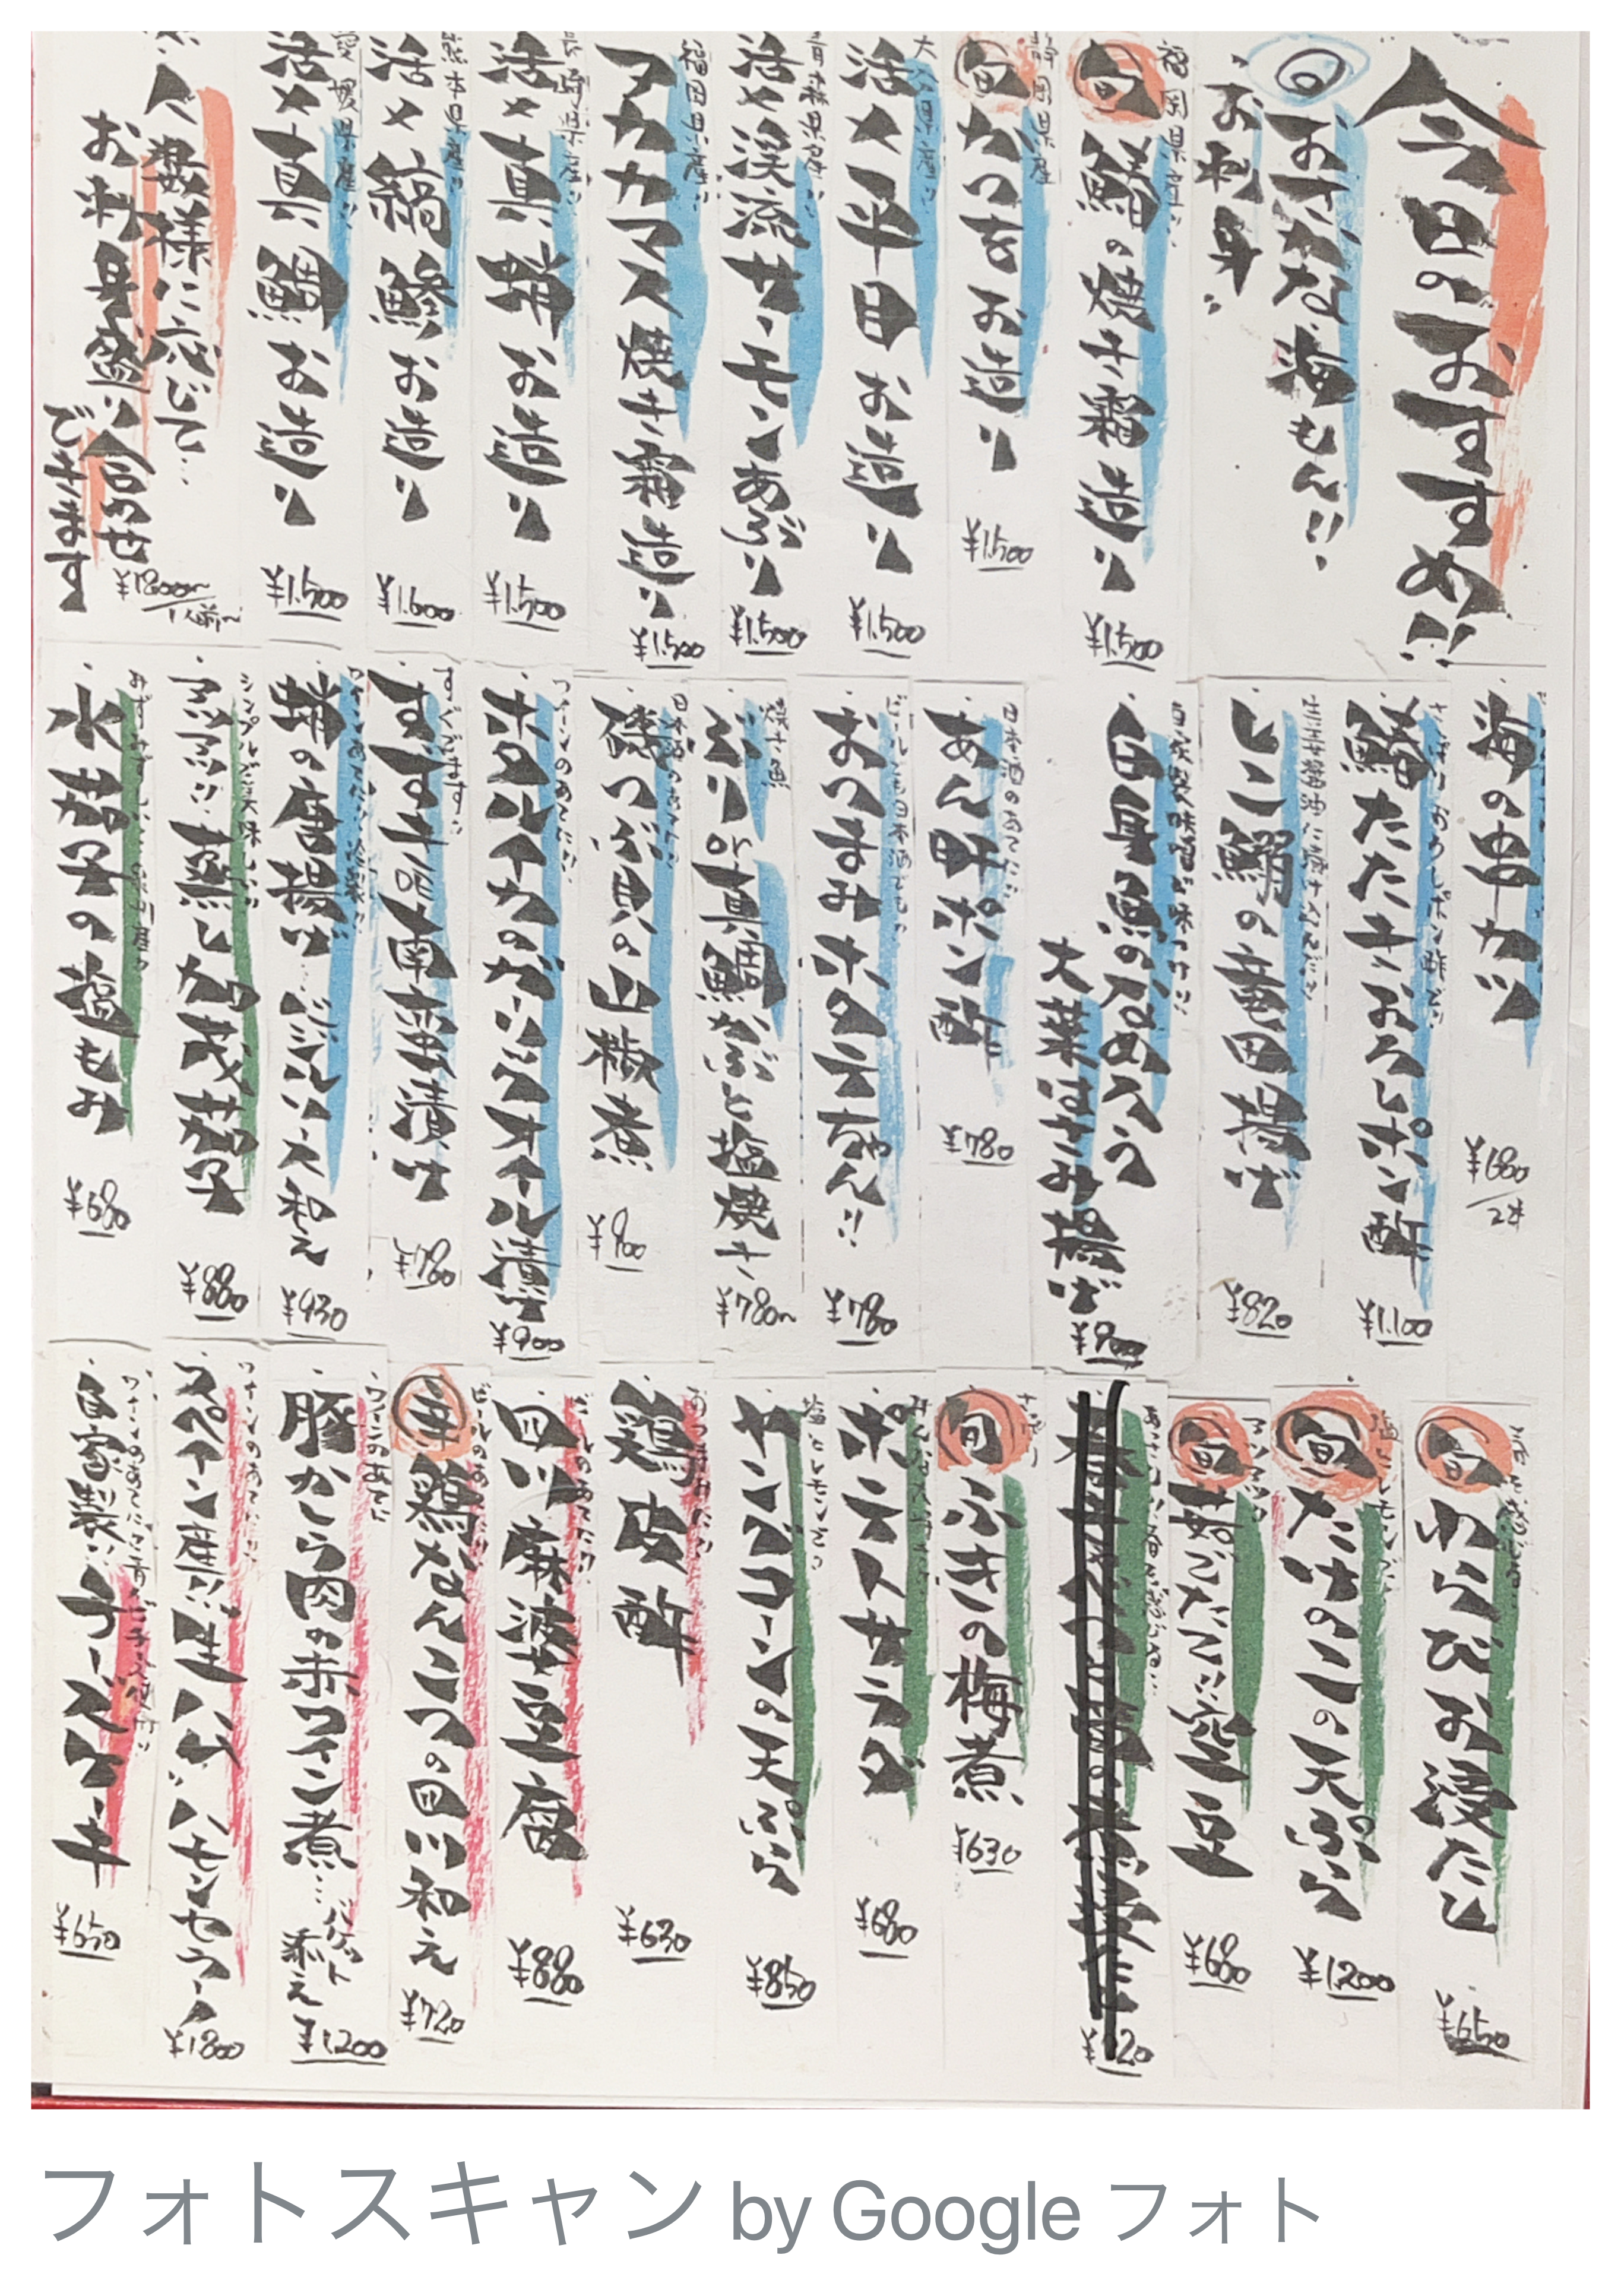 今日のおすすめ!!
旬
おさかな海もん!!
お刺身
福岡県産
旬
鰆の焼き霜造り
¥1.500
静岡県産
旬
かつをお造り
¥1.500
大分県産
活〆平目お造り
¥1.500
青森県産
活〆渓流サーモンあぶり
¥1.500
福岡県産
アカカマス焼き霜造り
¥1.500
長崎県産
活〆真蛸お造り
¥1.500
熊本県産
活〆縞鯵お造り
¥1.600
愛媛県産
活〆真鯛お造り
¥1.500
人数様に応じて…
お料理盛り合わせ
できます
¥1200~/1人前~
海の串カツ
¥680/2本
さっぱりおろしポン酢で
鰆たたきおろしポン酢
¥1.100
生姜醤油に漬け込んだ
しこ鰯の竜田揚げ
¥820
自家製味噌が味つけ!!
白身魚のなめろう
大葉はさみ揚げ
¥900
日本酒のあてに
あん肝ポン酢
¥780
ビールでも日本酒でも
おつまみホタテちゃん!!
¥780
焼き魚
ぶり or 真鯛かぶと塩焼き
¥780~
日本酒のあてに
磯つぶ貝の山椒煮
¥900
ワインのあてに!!
ホタルイカのガーリックオイル漬け
¥900
すぐでます
すずき南蛮漬け
¥780
蛸の唐揚げ…バジルソース和え
¥930
シンプルで美味しい
京都蒸し加茂茄子
¥880
みずみずしい
水茄子の塩もみ
¥680
旬
わらびお浸たし
¥650
塩とレモンで
旬
たけのこの天ぷら
¥1200
旬
茹でたて!!空豆
¥680
旬
ふきの梅煮
¥630
ポテトサラダ
¥680
塩とレモンで
ヤングコーンの天ぷら
¥850
おつまみに
鶏皮酢
¥630
ビールのあてに
四川麻婆豆腐
¥880
ビールのあてに
辛
鶏なんこつの四川和え
¥720
ワインのあてに
豚かしら肉の赤ワイン煮…バゲット添え
¥1200
ワインのあてに
スペイン産!!生ハム"ハモンセラーノ
¥1800
自家製!!チーズケーキ
¥650
フォトスキャン by Google フォト